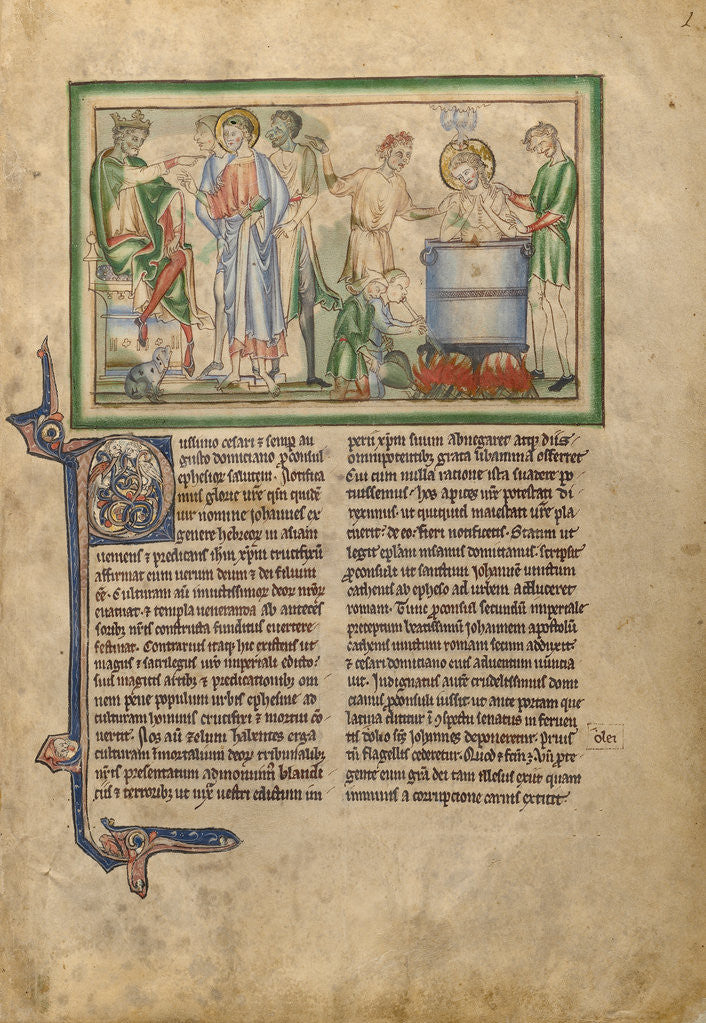 1
Piissimo cesari ⁊ semp au
gusto domiciano ꝓconsul
ephesior̄ salutem. Notifica
mus glorie vr̄e qm̄ quidē
uir nomine iohannes ex
genere hebreor̄ in asiam
ueniens ⁊ predicans ihm̄ xp̄m crucifixū
affirmat eum uerum deum ⁊ dei filium
eē. Culturam aū inuictissimor̄ deor̄ nr̄or̄
euacuat. ⁊ templa ueneranda ab anteces
soribꝫ nr̄is constructa funditus euertere
festinat. Contrarius itaqꝫ hic existens ut
magus ⁊ sacrilegus vr̄o imperiali edicto.
suis magicis artibꝫ ⁊ predicationibꝫ om
nem pene populum urbis ephesine ad
culturam hominis crucifixi ⁊ mortui cō
uertit. Nos aū zelum habentes erga
culturam īmortalium deor̄ tribunalibꝫ
nr̄is presentatum admonuim̄ blandi
ciis ⁊ terroribꝫ ut iux̄ vestri edictum im
perii xp̄m suum abnegaret atqꝫ diis
omnipotentibꝫ grata libamina offerret
Cui cum nulla ratione ista suadere po
tuissemus. hos apices vr̄e potestati di
reximus. ut quicquid maiestati vr̄e pla
cuerit. de eo fieri notificetis. Statim ut
legit ep̄lam insanus domicianus. scripsit
ꝓconsuli ut sanctum iohannē uinctum
cathenis ab epheso ad urbem adduceret
romam. Tunc ꝓconsul secundū imperiale
preceptum beatissimū iohannem apostolū
cathenis uinctum romam secum adduxit
⁊ cesari domiciano eius aduentum nuncia
uit. Indignatus autē crudelissimus domi
cianus ꝓconsuli iussit ut ante portam que
latina dicitur ī ꝯspectu senatus in feruen
tis dolio sc̄s iohannes deponeretur. prius
tn̄ flagellis cederetur. Quod ⁊ fc̄m ē. Vn̄ pte
gente eum grā dei tam illesus exiit quam
immunis a corrupcione carnis extitit.
olei